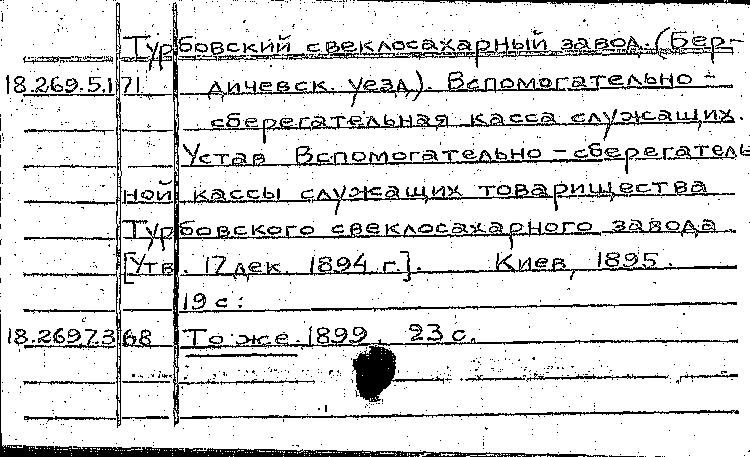 Турбовский свеклосахарный завод. (Бер-
18.269.5.171 дичевск. уезд). Вспомогательно-
сберегательная касса служащих.
Устав Вспомогательно-сберегатель
ной кассы служащих товарищества
Турбовского свеклосахарного завода
[Утв. 17 дек. 1894 г.]. Киев, 1895.
19 с.
18.269.7.368 То же. 1899. 23 с.